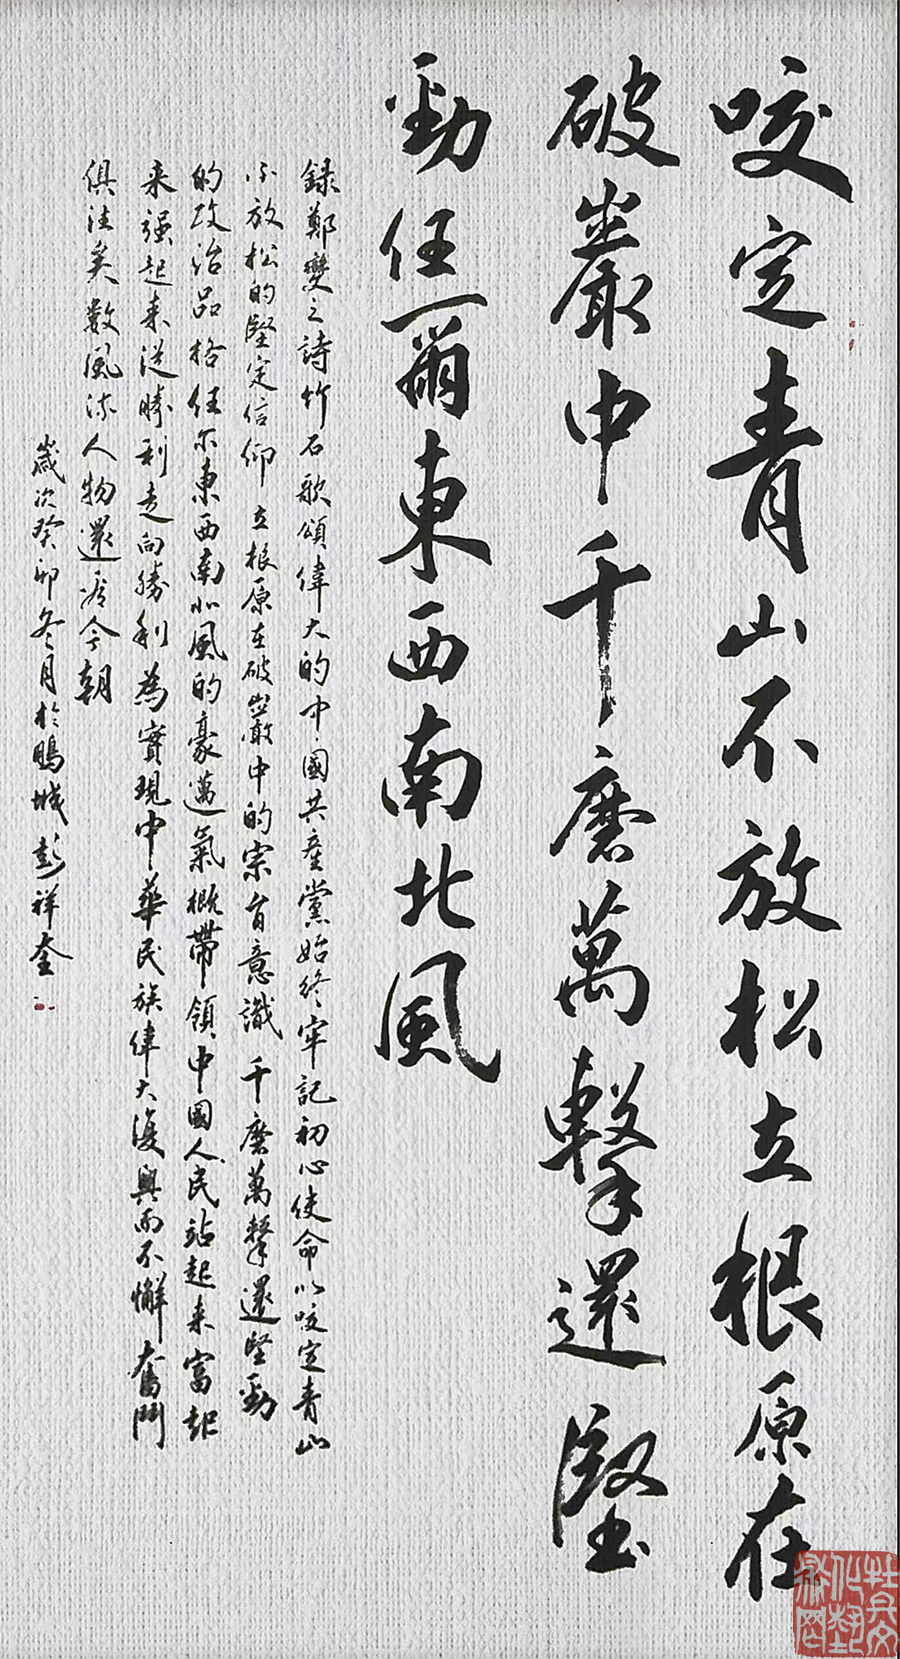 咬定青山不放松立根原在
破巖中千磨萬擊還堅
勁任爾東西南北風
録鄭燮之詩竹石歌頌偉大的中國共產黨始終牢記初心使命以咬定青山
不放松的堅定信仰立根原在破巖中的宗旨意識千磨萬擊還堅勁
的政治品格任尔東西南北風的豪邁氣概帶領中國人民站起来富起
来强起来從勝利走向勝利為實現中華民族偉大復興而不懈奮鬥
俱往矣數風流人物還看今朝
歲次癸卯冬月於鵬城彭祥奎